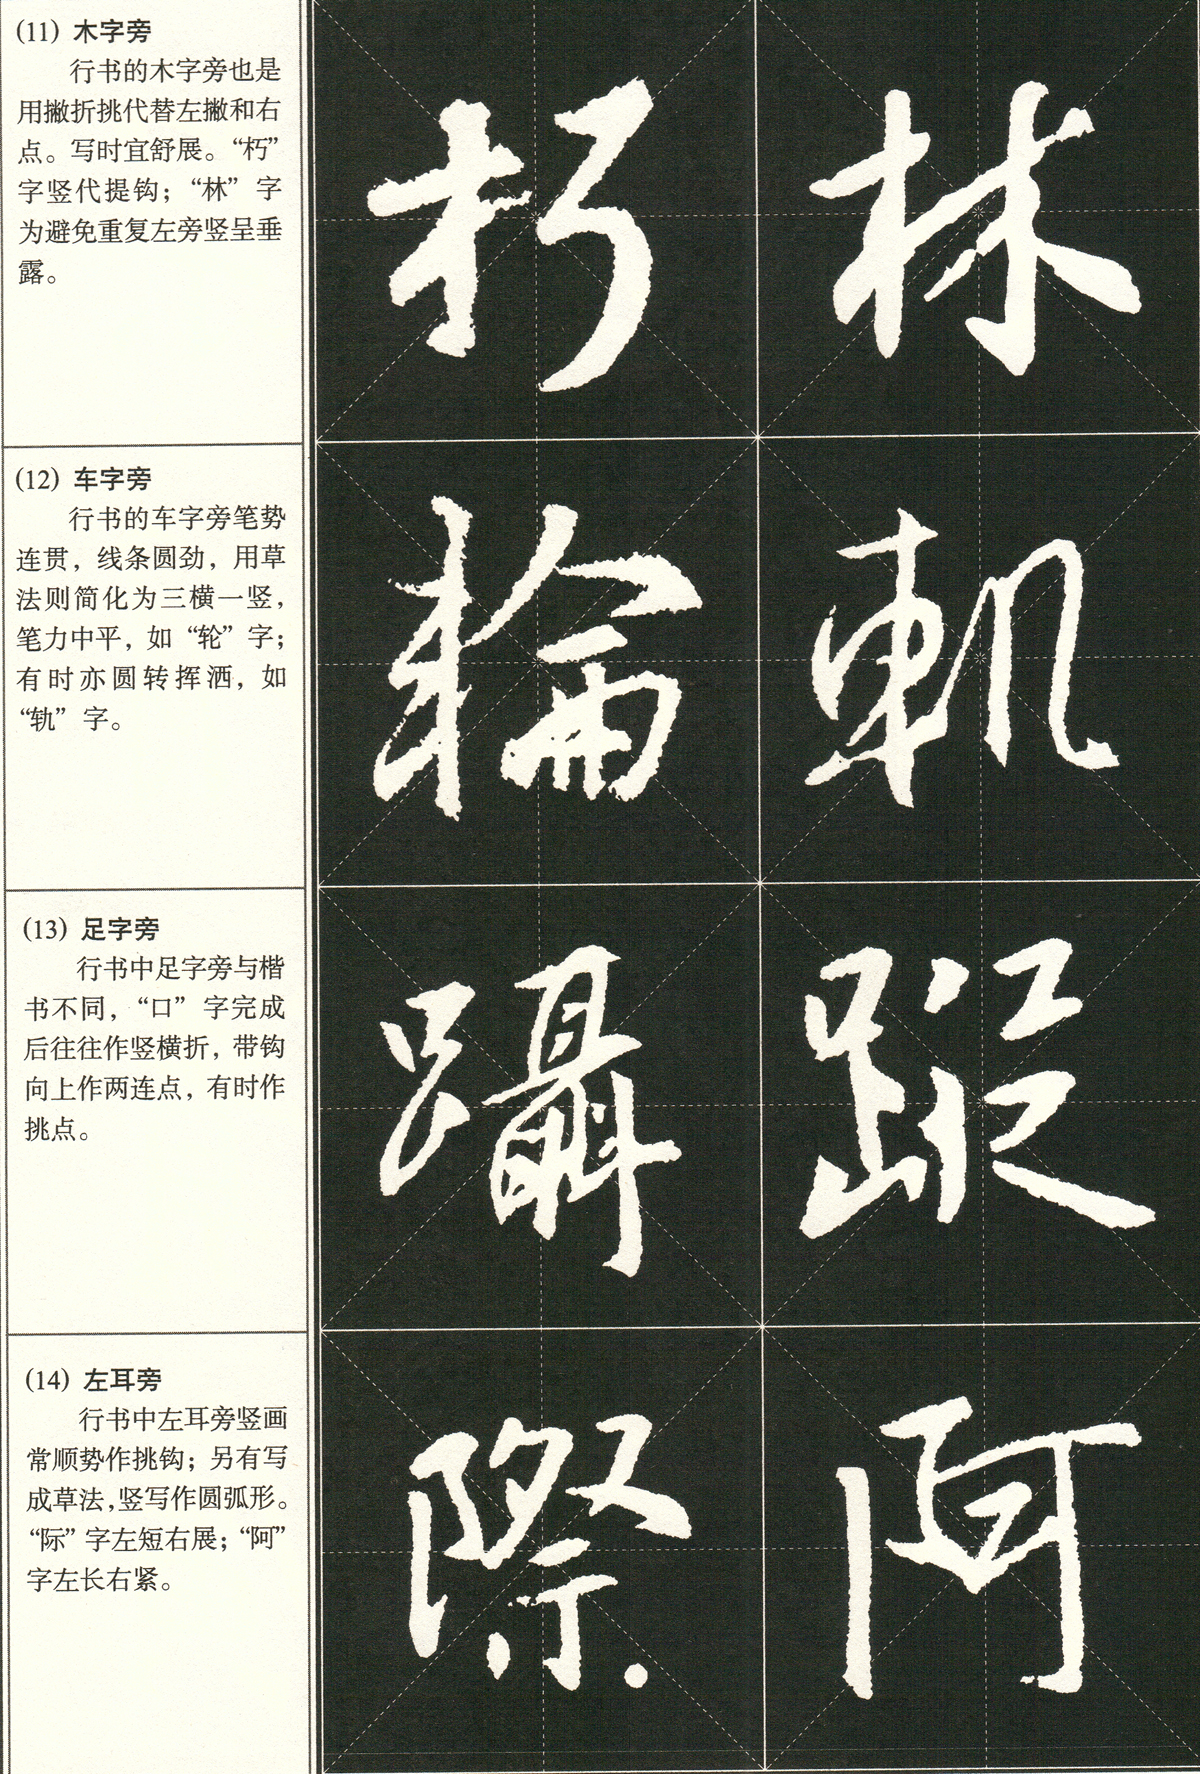 (11) 木字旁
行书的木字旁也是
用撇折挑代替左撇和右
点。写时宜舒展。“朽”
字竖代提钩；“林” 字
为避免重复左旁竖呈垂
露。
朽 林
(12) 车字旁
行书的车字旁笔势
连贯，线条圆劲，用草
法则简化为三横一竖，
笔力中平，如 “轮” 字；
有时亦圆转挥洒，如
“轨” 字。
輪 軌
(13) 足字旁
行书中足字旁与楷
书不同，“口” 字完成
后往往作竖横折，带钩
向上作两连点，有时作
挑点。
躡 蹤
(14) 左耳旁
行书中左耳旁竖画
常顺势作挑钩；另有写
成草法，竖写作圆弧形。
“际” 字左短右展；“阿”
字左长右紧。
際 阿